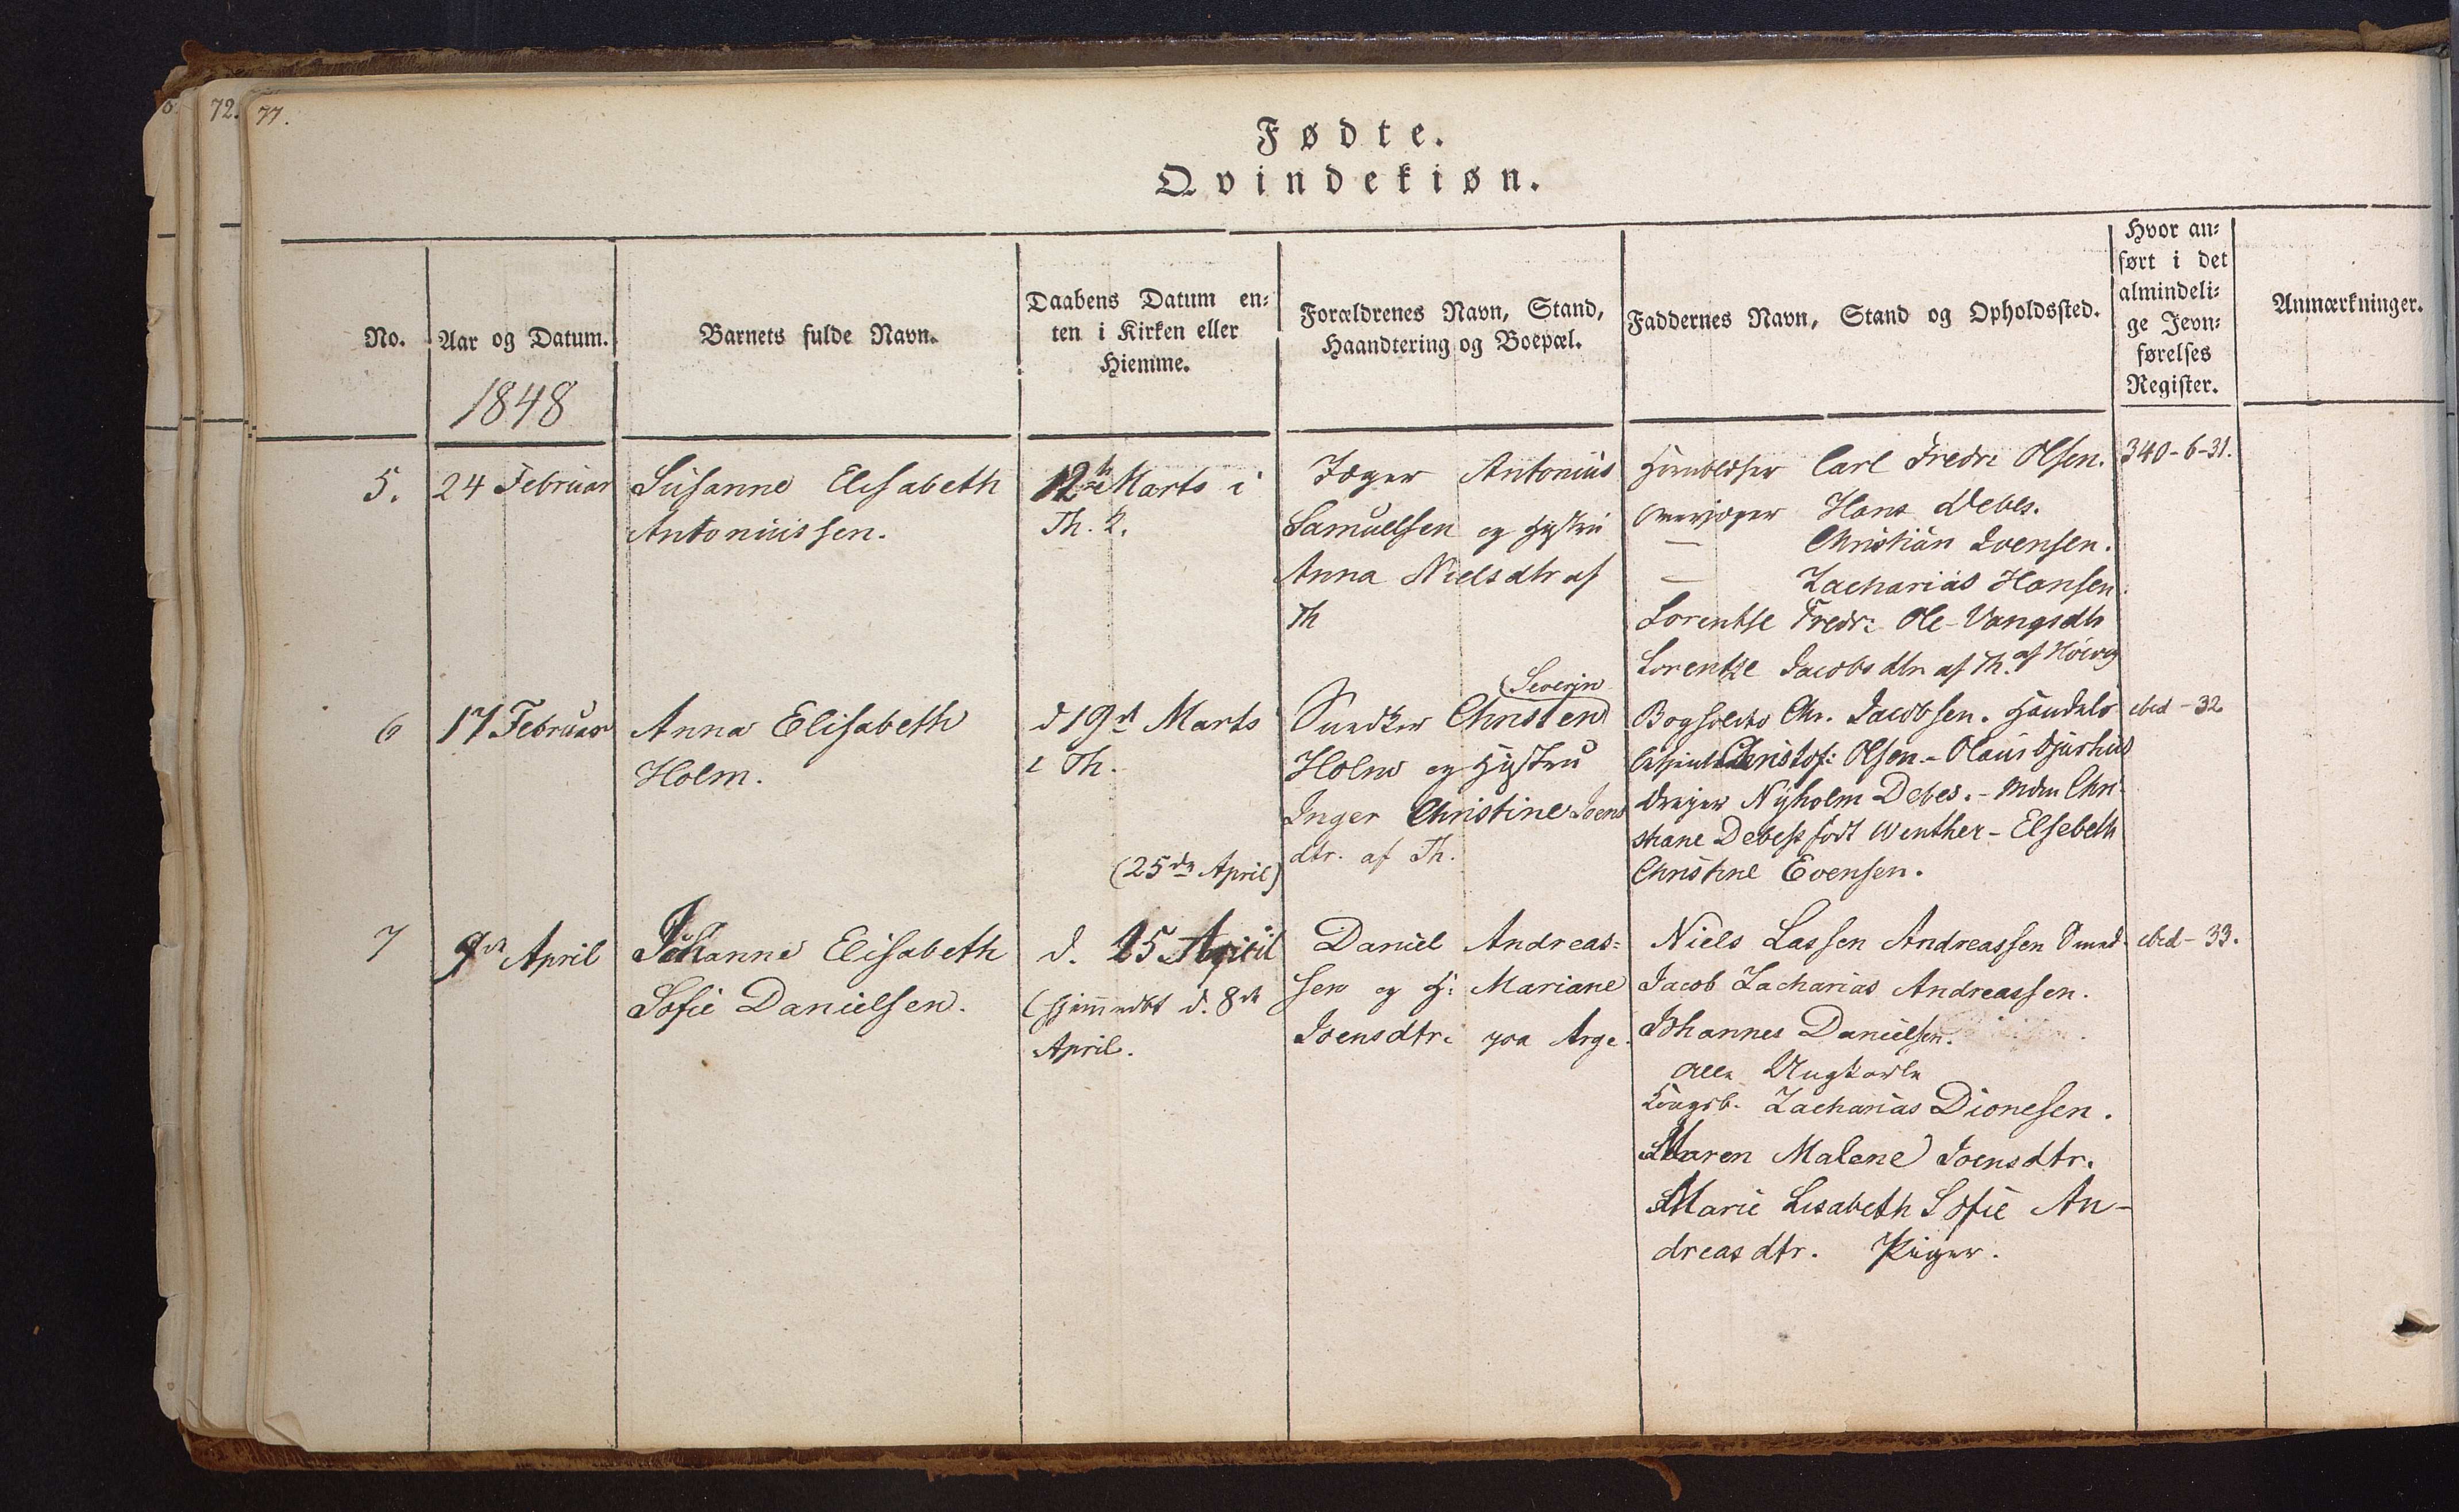 72.
77.
Fødte.
Qvindekiøn.
No.
Aar og Datum.
1848
Barnets fulde Navn.
Daabens Datum en-
ten i Kirken eller
Hiemme.
Forældrenes Navn, Stand,
Haandtering og Boepæl.
Faddernes Navn, Stand og Opholdssted.
Hvor an-
ført i det
almindeli-
ge Jevn-
førelses
Register.
Anmærkninger.
5.
24 Februar
Susanne Elisabeth
Antoniussen.
12te Marts i
Th. K.
Jæger Antonius
Samuelsen og Hustru
Anna Nielsdtr af
Th
Carl Fredr: Olsen.
Hans Debes.
— Christian Ivensen.
— Zacharias Hansen
Lorentse Fredr: Ole-Vangsdtr
af Höivig
Lorentze Jacobsdtr af Th.
340-6-31.
6
17 Februar
Anna Elisabeth
Holm.
d 19de Marts
i Th.
(Severin
Snedker Christen
Holm og Hustru
Inger Christine Joens
dtr. af Th.
Chr. Jacobsen. Handels
Christof: Olsen. - Olaus Djurhuus
Dreyer Nyholm Debes. - Mdm Chri-
stiane Debess født Winther - Elsebeth
Christine Evensen.
ibid - 32
7
9de April
Johanne Elisabeth
Sofie Danielsen.
(25de April)
d. 25 April
(hjemmedbt d. 8de
April.
Daniel Andreas-
sen og H: Mariane
Joensdtr: paa Arge.
Niels Lassen Andreassen
Jacob Zacharias Andreassen.
Johannes Danielsen.
alle Ungkarle
Kongsb. Zacharias Dionesen.
Maren Malene Joensdtr.
Marie Lisabeth Sofie An-
dreasdtr. Piger.
ibid - 33.